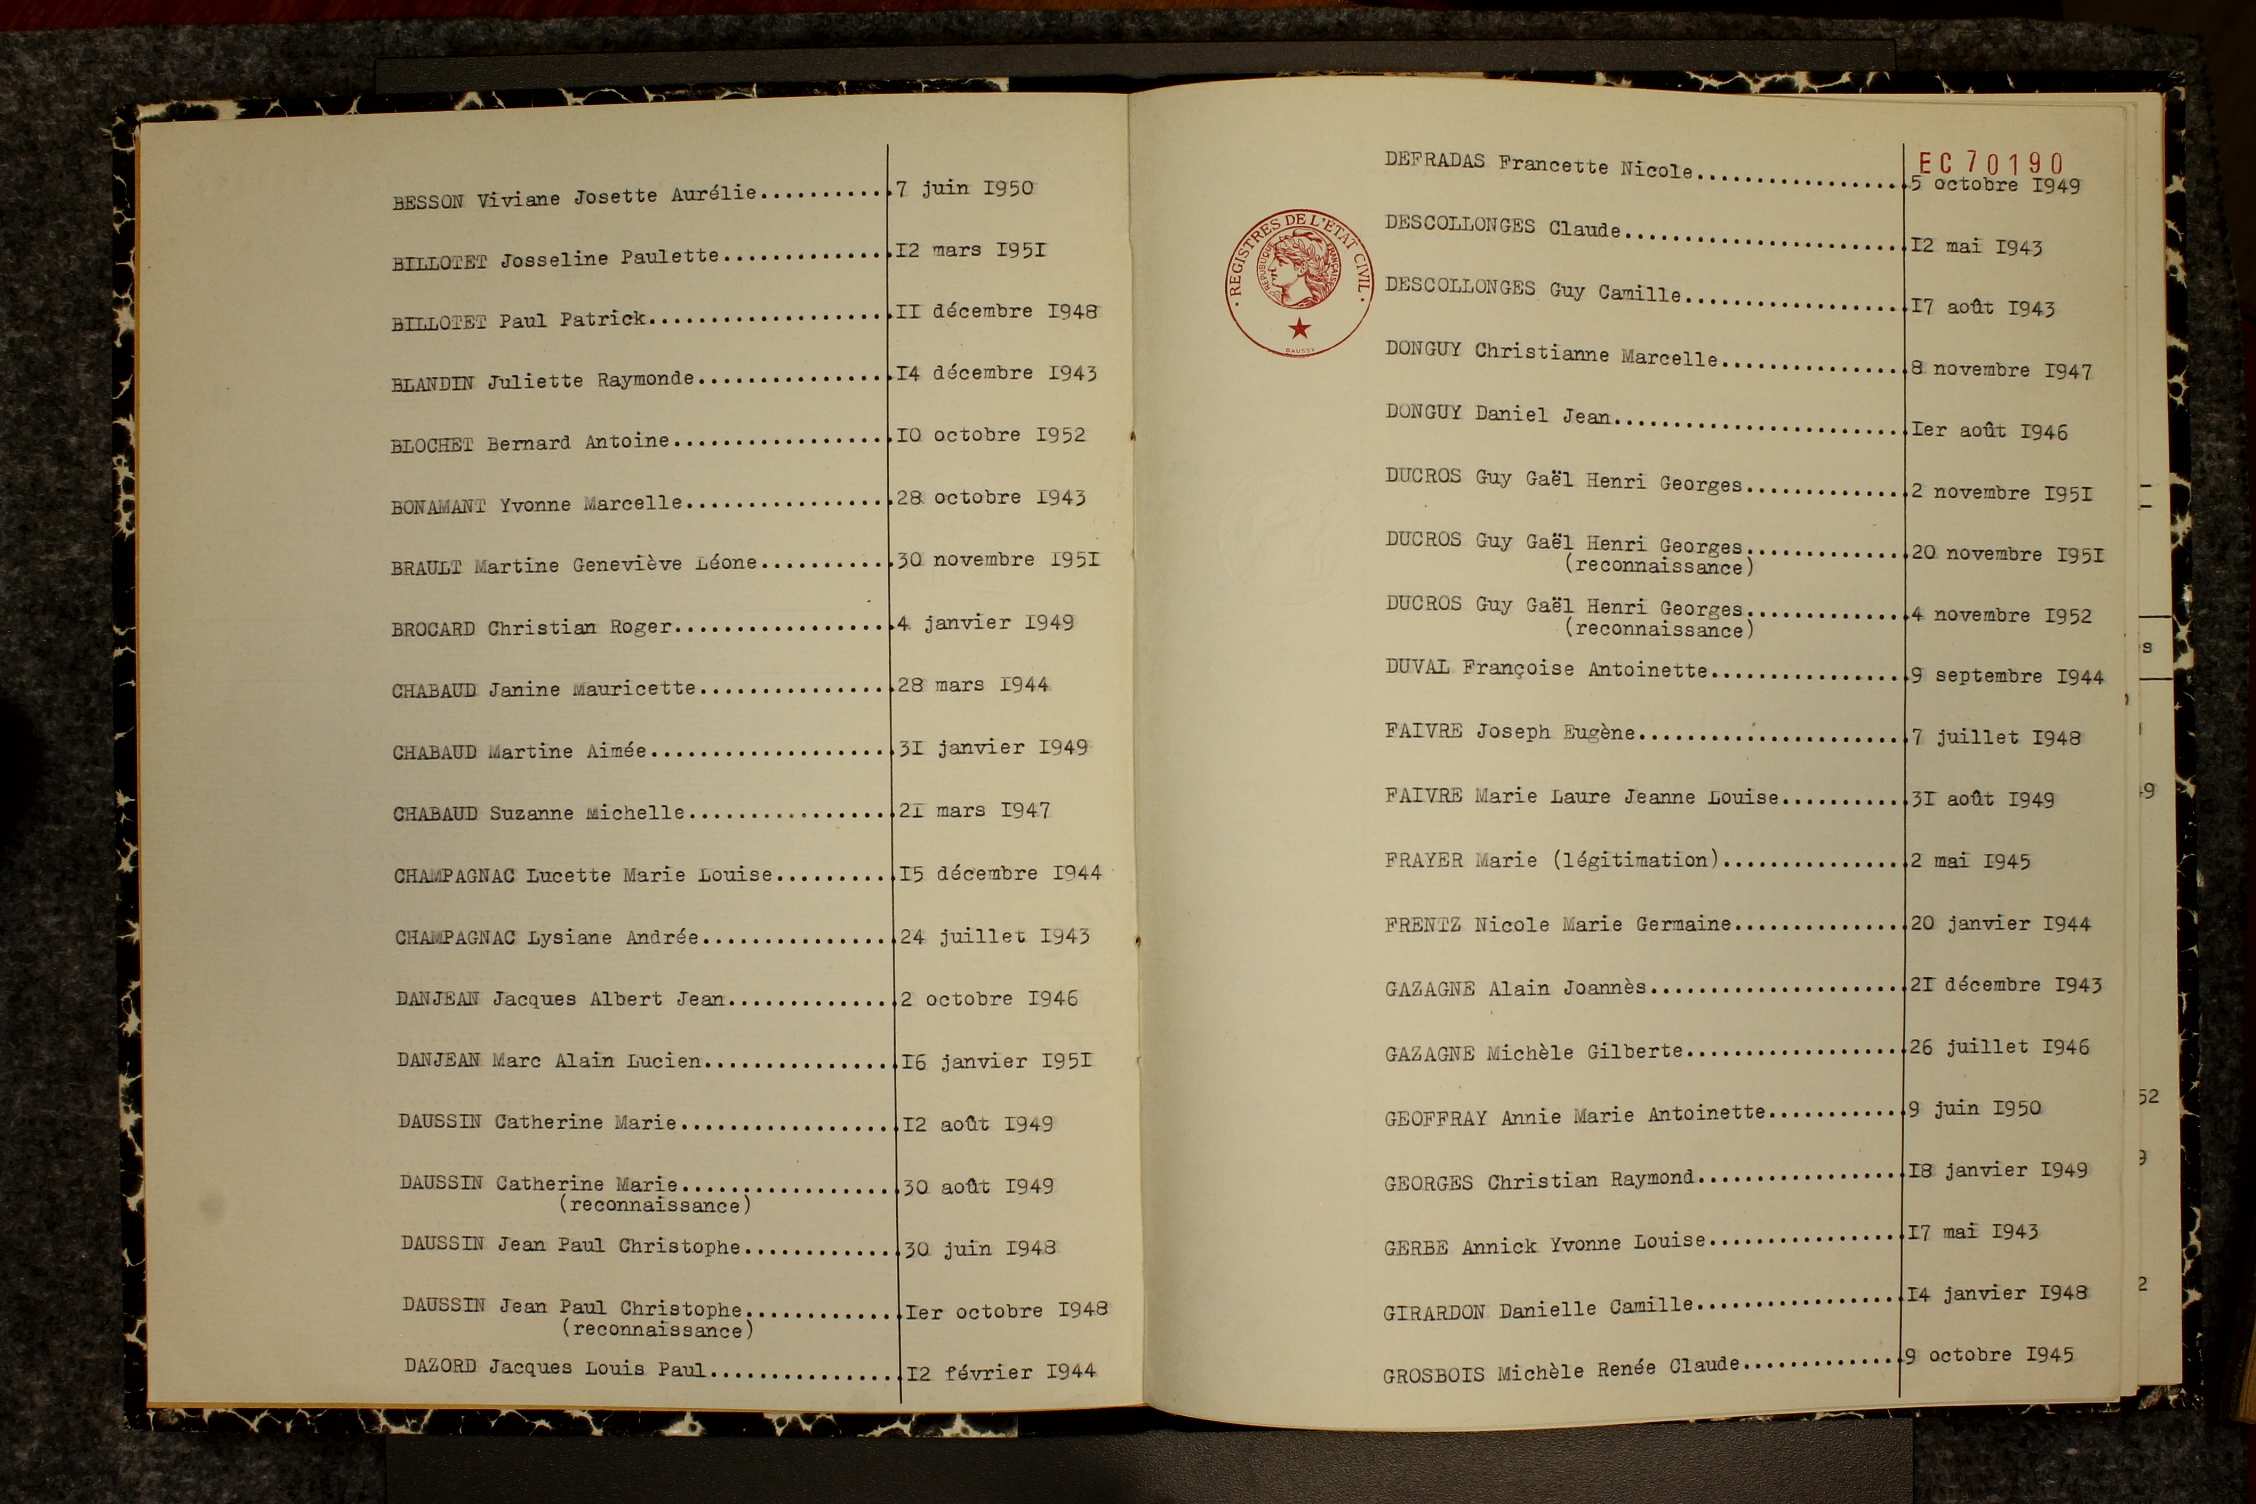 BESSON Viviane Josette Aurélie...........7 juin I950
BILLOTET Josseline Paulette..............I2 mars I95I
BILLOTET Paul Patrick....................II décembre I948
BLANDIN Juliette Raymonde................I4 décembre I943
BLOCHET Bernard Antoine..................IO octobre I952
BONAMANT Yvonne Marcelle.................28 octobre I943
BRAULT Martine Geneviève Léone...........30 novembre I95I
BROCARD Christian Roger..................4 janvier I949
CHABAUD Janine Mauricette................28 mars I944
CHABAUD Martine Aimée....................3I janvier I949
CHABAUD Suzanne Michelle.................2I mars I947
CHAMPAGNAC Lucette Marie Louise..........I5 décembre I944
CHAMPAGNAC Lysiane Andrée................24 juillet I943
DANJEAN Jacques Albert Jean..............2 octobre I946
DANJEAN Marc Alain Lucien................I6 janvier I95I
DAUSSIN Catherine Marie..................I2 août I949
DAUSSIN Catherine Marie..................30 août I949
(reconnaissance)
DAUSSIN Jean Paul Christophe.............30 juin I948
DAUSSIN Jean Paul Christophe.............Ier octobre I948
(reconnaissance)
DAZORD Jacques Louis Paul................I2 février I944
EC 70190
REGISTRES DE L'ÉTAT CIVIL
RÉPUBLIQUE FRANÇAISE
DEFRADAS Francette Nicole..................5 octobre I949
DESCOLLONGES Claude........................I2 mai I943
DESCOLLONGES Guy Camille...................I7 août I943
DONGUY Christianne Marcelle................8 novembre I947
DONGUY Daniel Jean.........................Ier août I946
DUCROS Guy Gaël Henri Georges..............2 novembre I95I
DUCROS Guy Gaël Henri Georges..............20 novembre I95I
(reconnaissance)
DUCROS Guy Gaël Henri Georges..............4 novembre I952
(reconnaissance)
DUVAL Françoise Antoinette.................9 septembre I944
FAIVRE Joseph Eugène.......................7 juillet I948
FAIVRE Marie Laure Jeanne Louise...........3I août I949
FRAYER Marie (légitimation)................2 mai I945
FRENTZ Nicole Marie Germaine...............20 janvier I944
GAZAGNE Alain Joannès......................2I décembre I943
GAZAGNE Michèle Gilberte...................26 juillet I946
GEOFFRAY Annie Marie Antoinette............9 juin I950
GEORGES Christian Raymond..................I8 janvier I949
GERBE Annick Yvonne Louise.................I7 mai I943
GIRARDON Danielle Camille..................I4 janvier I948
GROSBOIS Michèle Renée Claude..............9 octobre I945